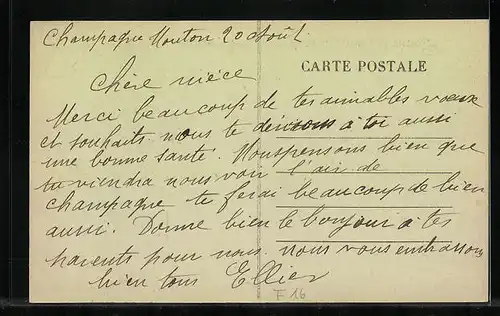 Champagne Mouton 20 Août
CARTE POSTALE
Chère nièce
Merci beaucoup de tes aimables voeux
et souhaits nous te désirons à toi aussi
une bonne santé. Nous pensons bien que
tu viendra nous voir l'air de
champagne te ferai beaucoup de bien
aussi. Donne bien le bonjour à tes
parents pour nous. nous vous embrassons
bien tous Ellier
F 16